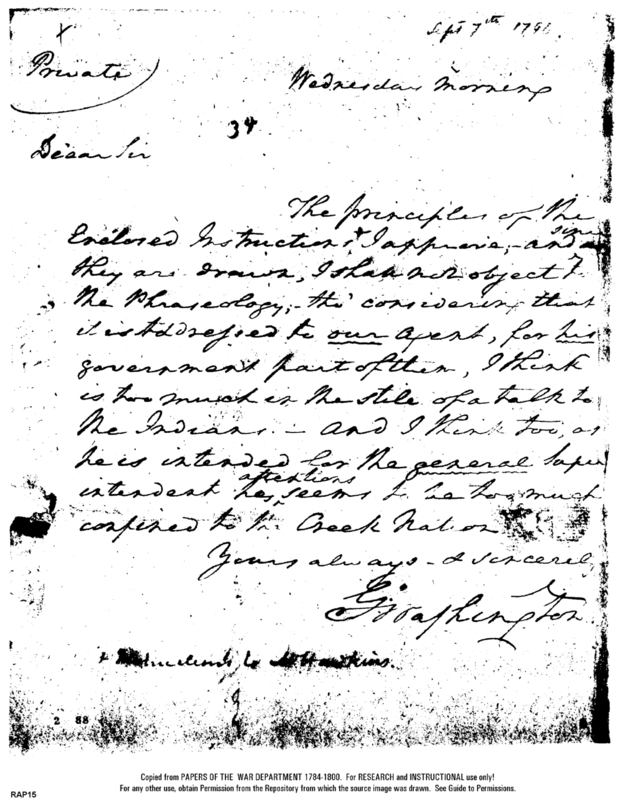 Sept 7th 179
Private
Wednesday Morning
34
Dear Sir
The principles of the
Enclosed Instructions + I approve, - and since
they are drawn, I shall not object to
the Phraseology; tho' considering that
it is addressed to our Agent, for his
government part of them, I think
is too much in the stile of a talk to
the Indians. - And I think too, as
he is intended for the general Super
intendent his attentions seems to be too much
confined to the Creek Nation
Yours always - & sincerely
G: Washington
+ to Mr Hawkins.
2 88
Copied from PAPERS OF THE WAR DEPARTMENT 1784-1800. For RESEARCH and INSTRUCTIONAL use only!
For any other use, obtain Permission from the Repository from which the source image was drawn. See Guide to Permissions.
RAP15